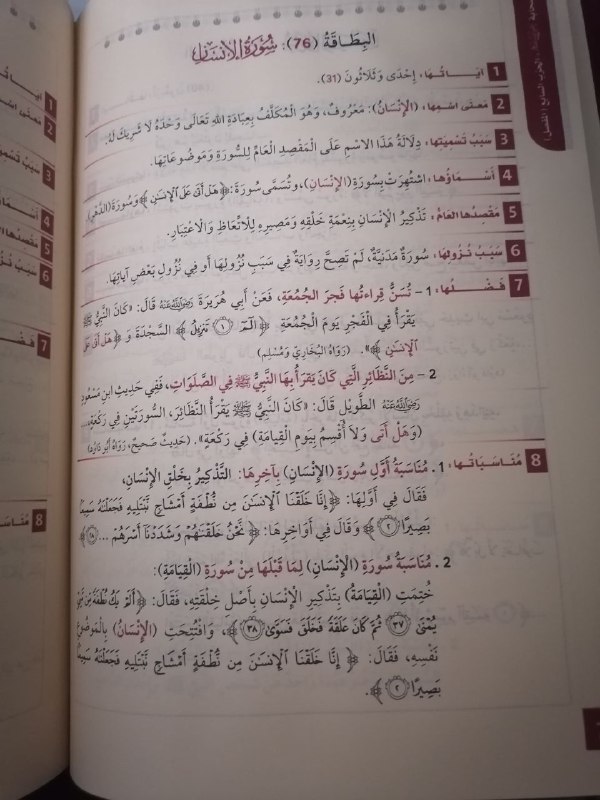 البِطَاقَةُ (76): سُورَةُ الإِنْسَانِ
1 آيَاتُهَا: إِحْدَى وَثَلَاثُونَ (31).
2 مَعْنَى اسْمِهَا: (الْإِنْسَانُ): مَعْرُوفٌ، وَهُوَ الْمُكَلَّفُ بِعِبَادَةِ اللهِ تَعَالَى وَحْدَهُ لَا شَرِيكَ لَهُ.
3 سَبَبُ تَسْمِيَتِهَا: دِلَالَةُ هَذَا الِاسْمِ عَلَى الْمَقْصِدِ الْعَامِّ لِلسُّورَةِ وَمَوْضُوعَاتِهَا.
4 أَسْمَاؤُهَا: اشْتُهِرَتْ بِسُورَةِ (الْإِنْسَانِ)، وَتُسَمَّى سُورَةَ: ﴿هَلْ أَتَىٰ عَلَى ٱلْإِنسَٰنِ﴾ وَسُورَةَ (الدَّهْرِ).
5 مَقْصِدُهَا الْعَامُّ: تَذْكِيرُ الْإِنْسَانِ بِنِعْمَةِ خَلْقِهِ وَمَصِيرِهِ لِلِاتِّعَاظِ وَالِاعْتِبَارِ.
6 سَبَبُ نُزُولِهَا: سُورَةٌ مَدَنِيَّةٌ، لَمْ تَصِحَّ رِوَايَةٌ فِي سَبَبِ نُزُولِهَا أَو فِي نُزُولِ بَعْضِ آيَاتِهَا.
7 فَضْلُهَا: 1 - تُسَنُّ قِرَاءَتُهَا فَجرَ الْجُمُعَةِ، فَعَنْ أَبِي هُرَيْرَةَ رَضِيَ اللَّهُ عَنْهُ قَالَ: «كَانَ النَّبِيُّ ﷺ
يَقْرَأُ فِي الْفَجْرِ يَومَ الْجُمُعَةِ ﴿الٓمٓ ۝١ تَنزِيلُ﴾ السَّجْدَةَ وَ ﴿هَلْ أَتَىٰ عَلَى
ٱلْإِنسَٰنِ﴾». (رَوَاهُ البُخَارِيّ وَمُسْلِم)
2 - مِنَ النَّظَائِرِ الَّتِي كَانَ يَقرَأُ بِهَا النَّبِيُّ ﷺ فِي الصَّلَوَاتِ، فَفِي حَدِيثِ ابنِ مَسْعُودٍ
رَضِيَ اللَّهُ عَنْهُ الطَّوِيْلِ قَالَ: «كَانَ النَّبِيُّ ﷺ يَقْرَأُ النَّظَائِرَ، السُّورَتَينِ فِي رَكْعَةٍ...
(وَهَلْ أَتَى وَلَا أُقْسِمُ بِيَومِ الْقِيَامَةِ) فِي رَكْعَةٍ». (حَدِيثٌ صَحِيحٌ، رَوَاهُ أَبُو دَاوُد)
8 مُنَاسَبَاتُهَا: 1. مُنَاسَبَةُ أَوَّلِ سُورَةِ (الْإِنْسَانِ) بِآخِرِهَا: التَّذْكِيرُ بِخَلْقِ الْإِنْسَانِ،
فَقَالَ فِي أَوَّلِهَا: ﴿إِنَّا خَلَقْنَا ٱلْإِنسَٰنَ مِن نُّطْفَةٍ أَمْشَاجٍ نَّبْتَلِيهِ فَجَعَلْنَٰهُ سَمِيعًۢا
بَصِيرًا ۝٢﴾ وَقَالَ فِي أَوَاخِرِهَا: ﴿نَّحْنُ خَلَقْنَٰهُمْ وَشَدَدْنَآ أَسْرَهُمْ ... ۝٢٨﴾
2. مُنَاسَبَةُ سُورَةِ (الْإِنْسَانِ) لِمَا قَبْلَهَا مِنْ سُورَةِ (الْقِيَامَةِ):
خُتِمَتِ (الْقِيَامَةُ) بِتَذْكِيرِ الْإِنْسَانِ بِأَصْلِ خِلْقَتِهِ، فَقَالَ: ﴿أَلَمْ يَكُ نُطْفَةً مِّن مَّنِيٍّ
يُمْنَىٰ ۝٣٧ ثُمَّ كَانَ عَلَقَةً فَخَلَقَ فَسَوَّىٰ ۝٣٨﴾، وَافْتُتِحَتِ (الْإِنْسَانُ) بِالْمَوضُوعِ
نَفْسِهِ، فَقَالَ: ﴿إِنَّا خَلَقْنَا ٱلْإِنسَٰنَ مِن نُّطْفَةٍ أَمْشَاجٍ نَّبْتَلِيهِ فَجَعَلْنَٰهُ سَمِيعًۢا
بَصِيرًا ۝٢﴾.